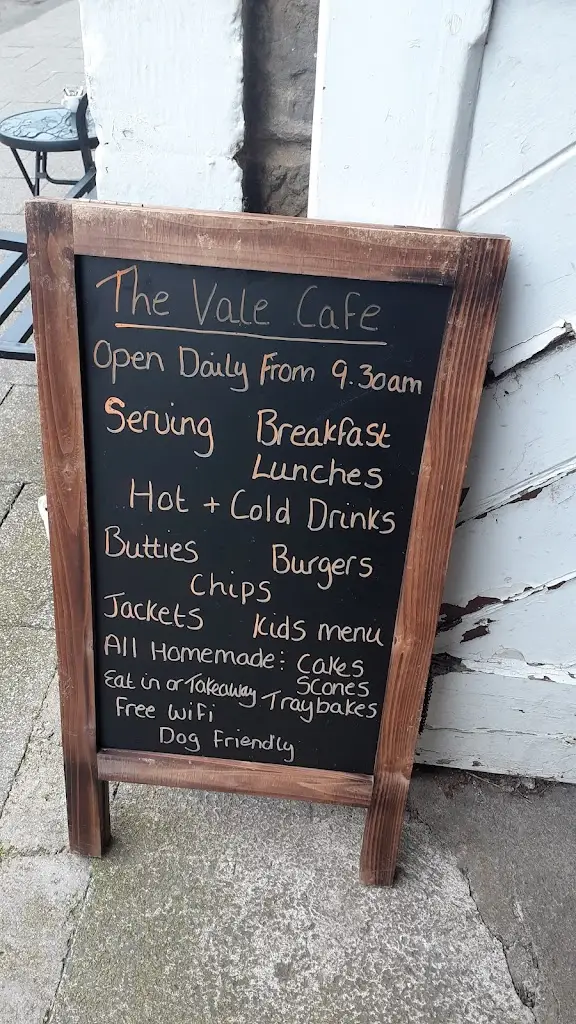 The Vale Cafe
Open Daily From 9.30am
Serving Breakfast
Lunches
Hot + Cold Drinks
Butties Burgers
Chips
Jackets Kids menu
All Homemade: Cakes
Scones
Eat in or Takeaway Traybakes
Free WiFi
Dog Friendly